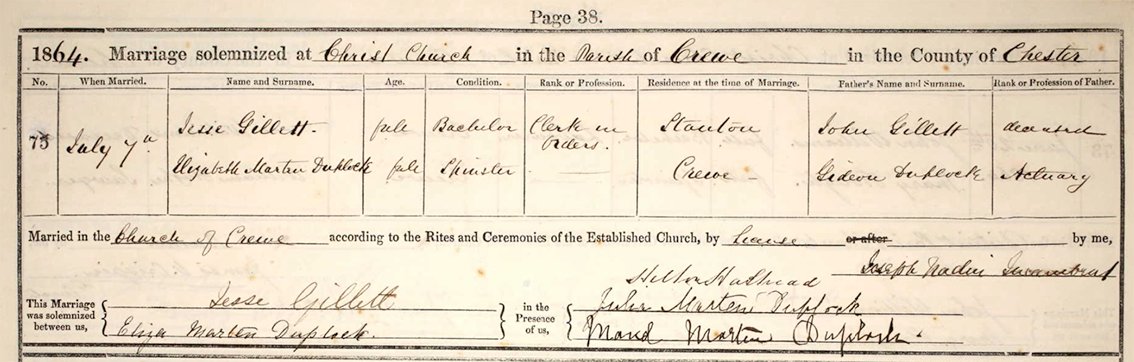 Page 38.
1864. Marriage solemnized at Christ Church in the Parish of Crewe in the County of Chester
No. When Married. Name and Surname. Age. Condition. Rank or Profession. Residence at the time of Marriage. Father's Name and Surname. Rank or Profession of Father.
75 July 7th Jesse Gillett. full Bachelor Clerk in Orders. Stanton John Gillett deceased
Elizabeth Marten Duplock full Spinster — Crewe Gideon Duplock Actuary
Married in the Church of Crewe according to the Rites and Ceremonies of the Established Church, by License or after by me,
Joseph Nadin Incumbent
This Marriage was solemnized between us,
Jesse Gillett
Eliza Marten Duplock.
in the Presence of us,
Hilton
Julia Marten Duplock
Maud Marten Duplock.